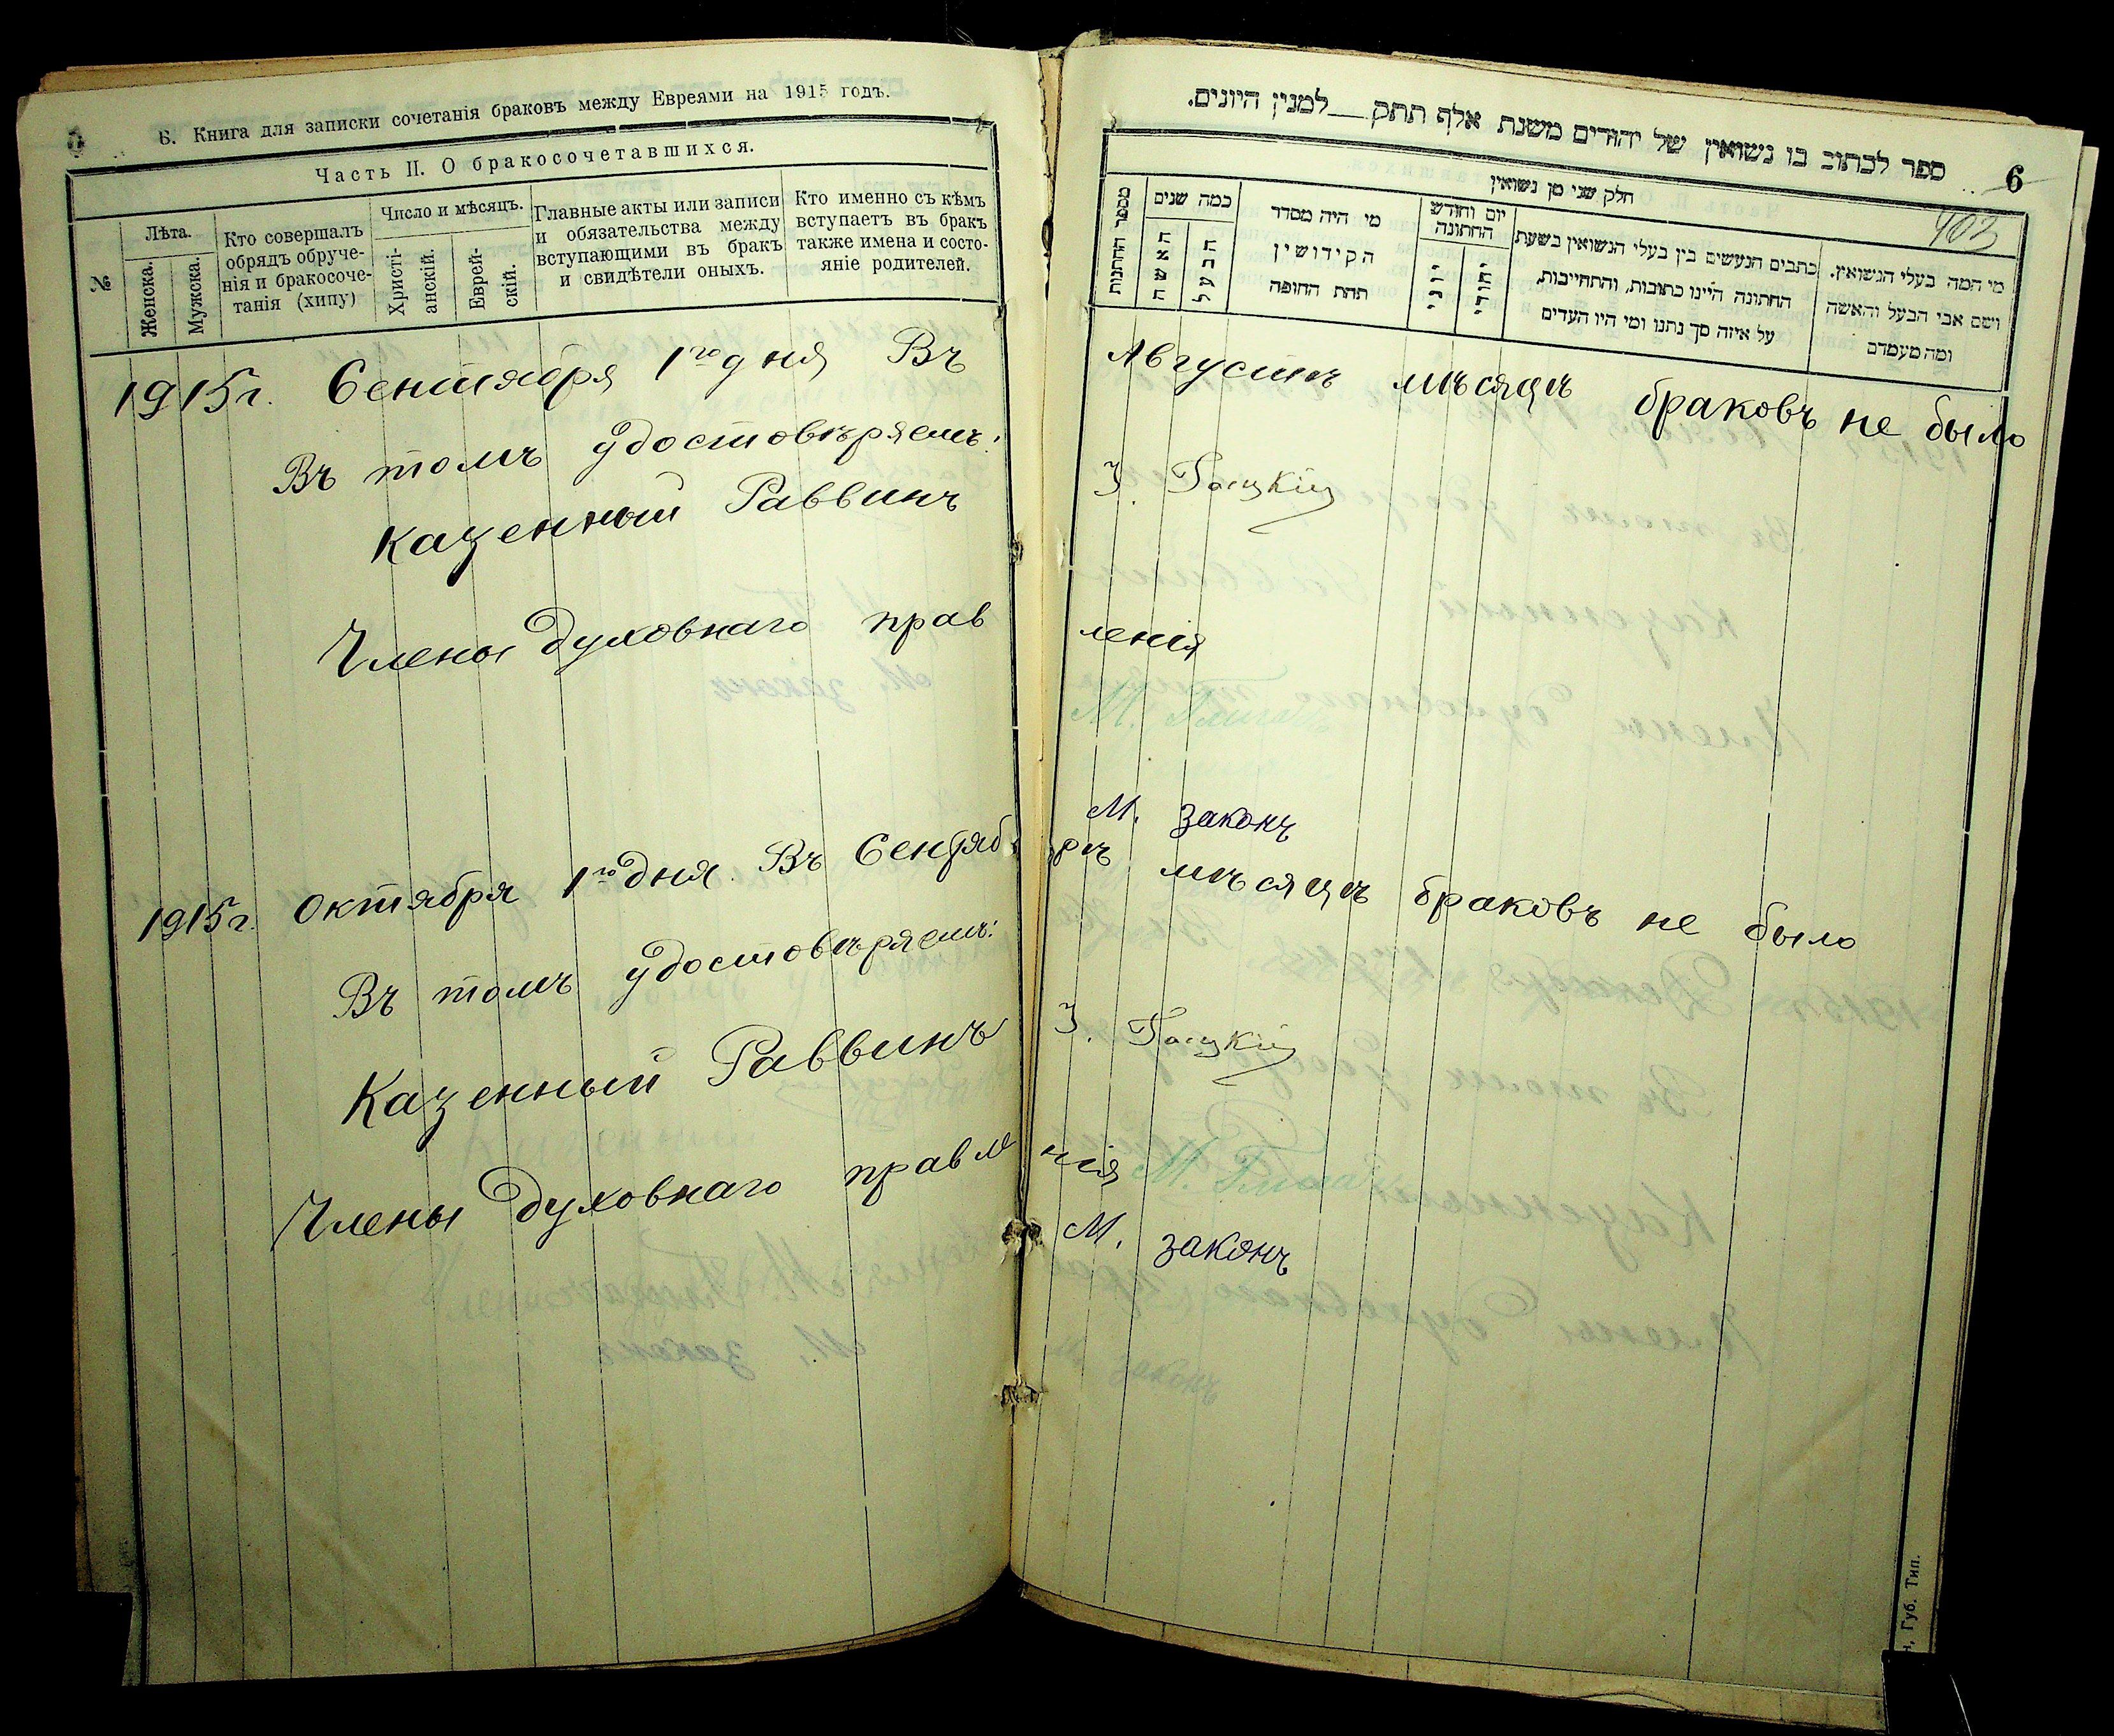 6. Книга для записки сочетанія браковъ между Евреями на 1915 годъ.
Часть II. О бракосочетавшихся.
№
Лѣта.
Женска.
Мужска.
Кто совершалъ
обрядъ обруче-
нія и бракосоче-
танія (хипу)
Число и мѣсяцъ.
Христі-
анскій.
Еврей-
скій.
Главные акты или записи
и обязательства между
вступающими въ бракъ
и свидѣтели оныхъ.
Кто именно съ кѣмъ
вступаетъ въ бракъ
также имена и состо-
яніе родителей.
ספר לכתוב בו נשואין של יהודים משנת אלף תתק__למנין היונים.
6
403
חלק שני מן נשואין
מספר החתנות
כמה שנים
האשה
הבעל
מי היה מסדר
הקידושין
תחת החופה
יום וחודש
החתונה
יוני
יהודי
כתבים הנעשים בין בעלי הנשואין בשעת
החתונה היינו כתובות, והתחייבות,
על איזה סך נתנו ומי היו העדים
מי המה בעלי הנשואין.
ושם אבי הבעל והאשה
ומה מעמדם
1915г. Сентября 1го дня Въ Августѣ мѣсяцѣ браковъ не было
Въ томъ удостовѣряемъ:
Казенный Раввинъ З.
Члены духовнаго правленія
М.
М. Законъ
1915г. Октября 1го дня. Въ Сентябрѣ мѣсяцѣ браковъ не было
Въ томъ удостовѣряемъ:
Казенный Раввинъ З.
Члены духовнаго правленія М.
М. Законъ
Губ. Тип.